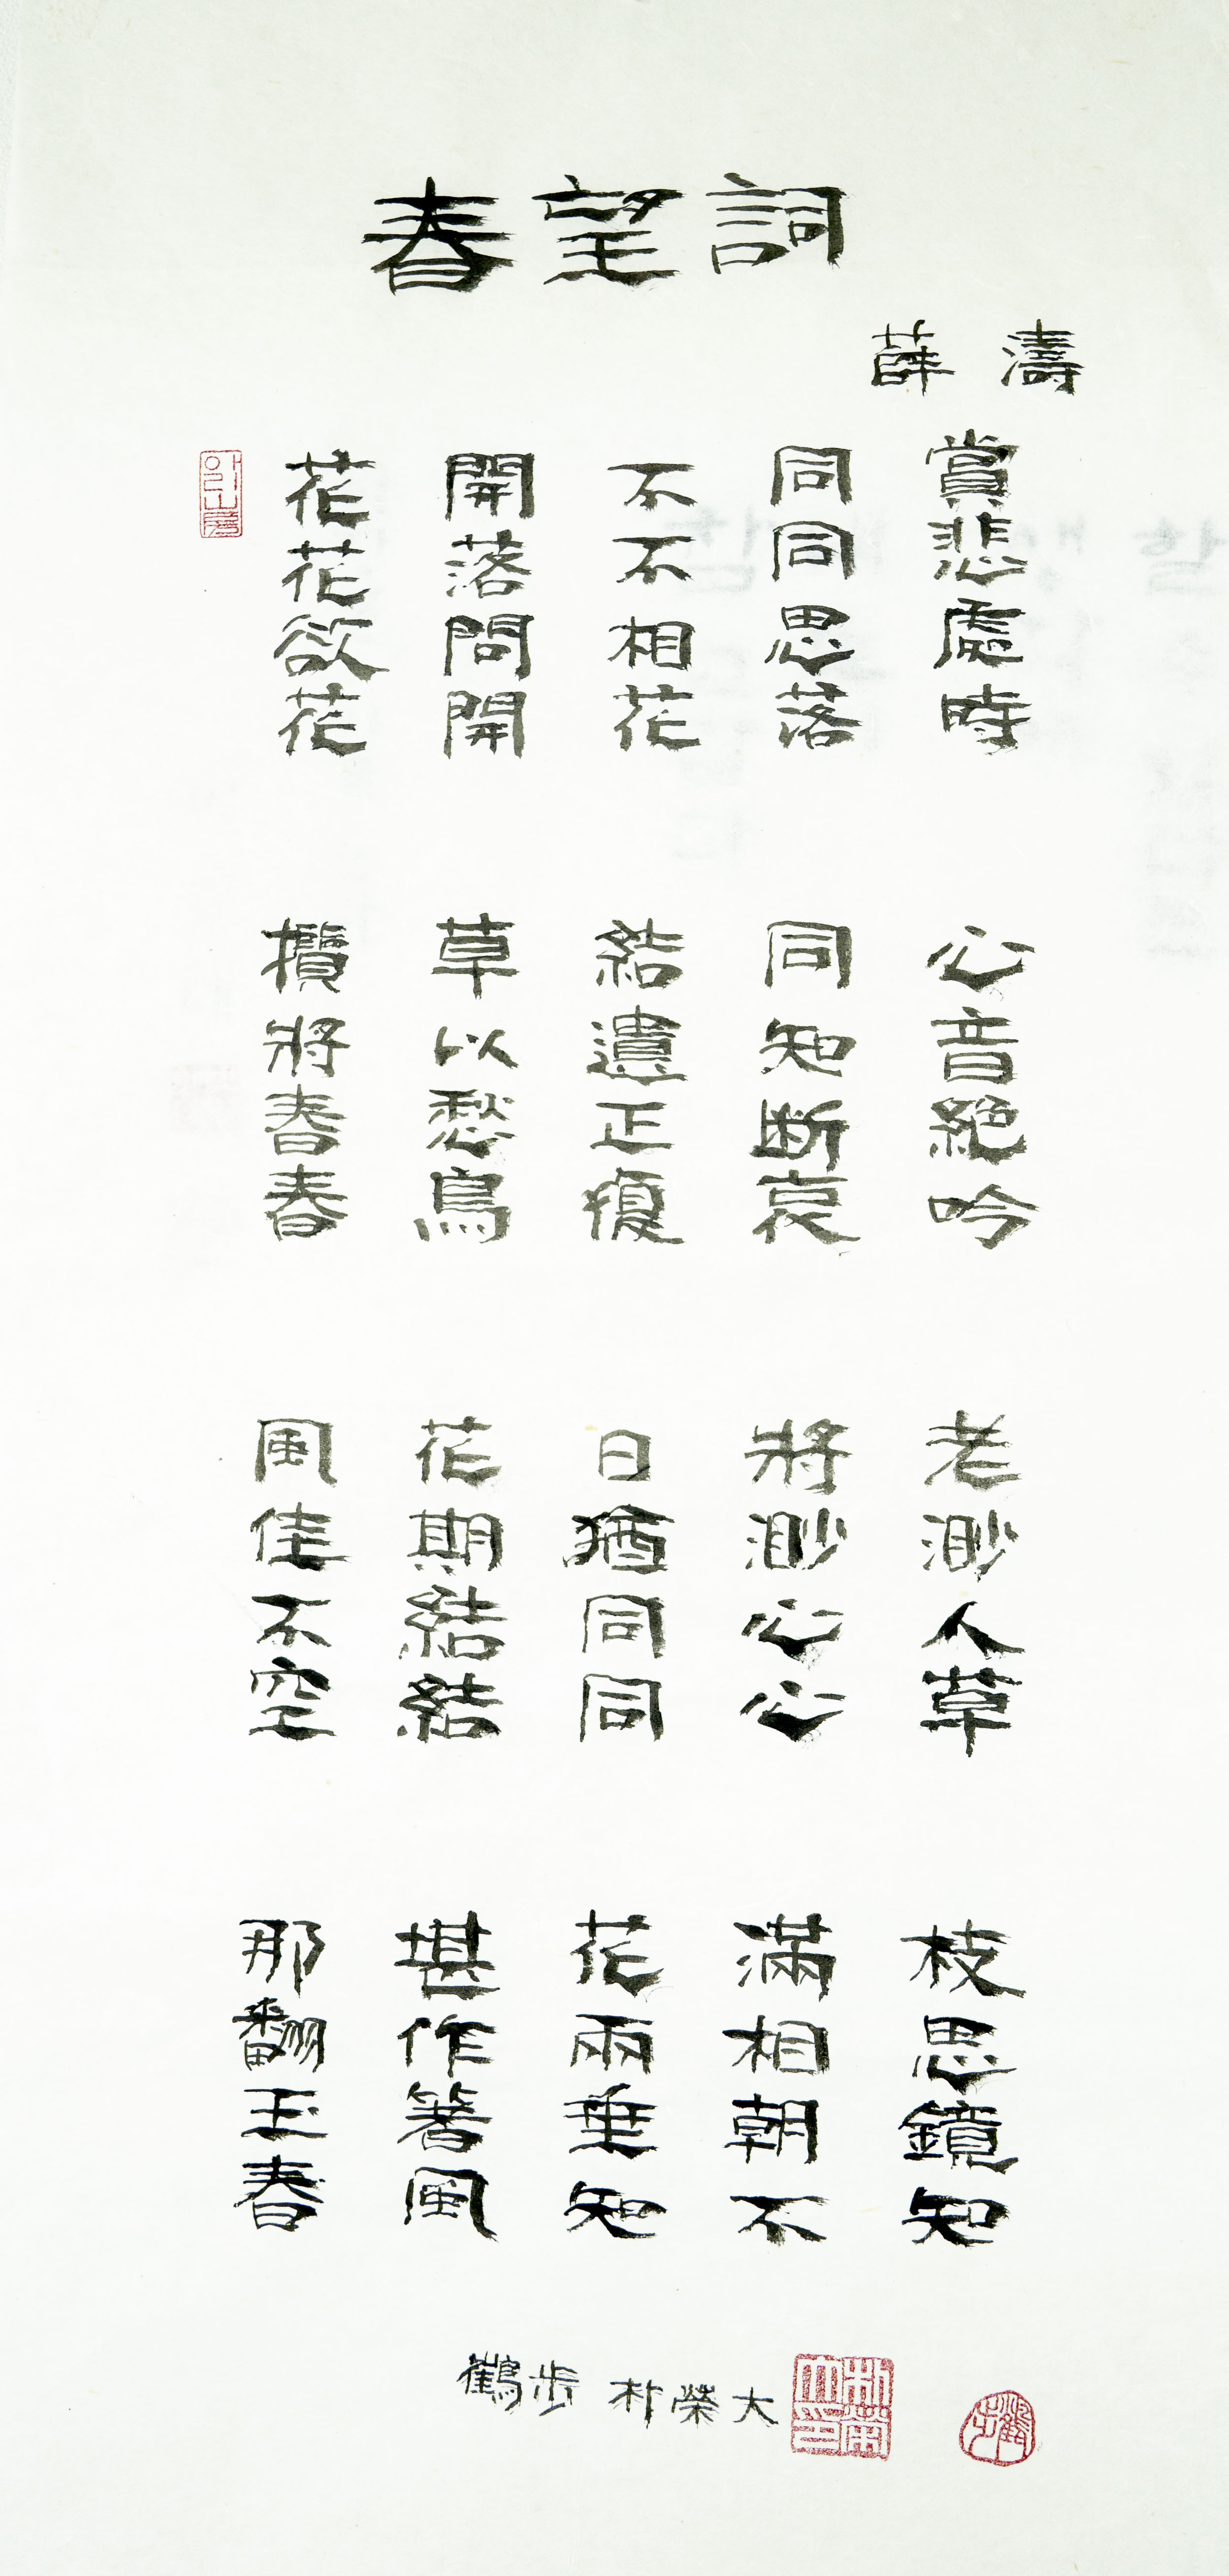 春望詞
薛濤
花開不同賞
花落不同悲
欲問相思處
花開花落時
攬草結同心
將以遺知音
春愁正断絕
春鳥復哀吟
風花日將老
佳期猶渺渺
不結同心人
空結同心草
那堪花滿枝
翻作兩相思
玉箸垂朝鏡
春風知不知
鶴步 朴榮大